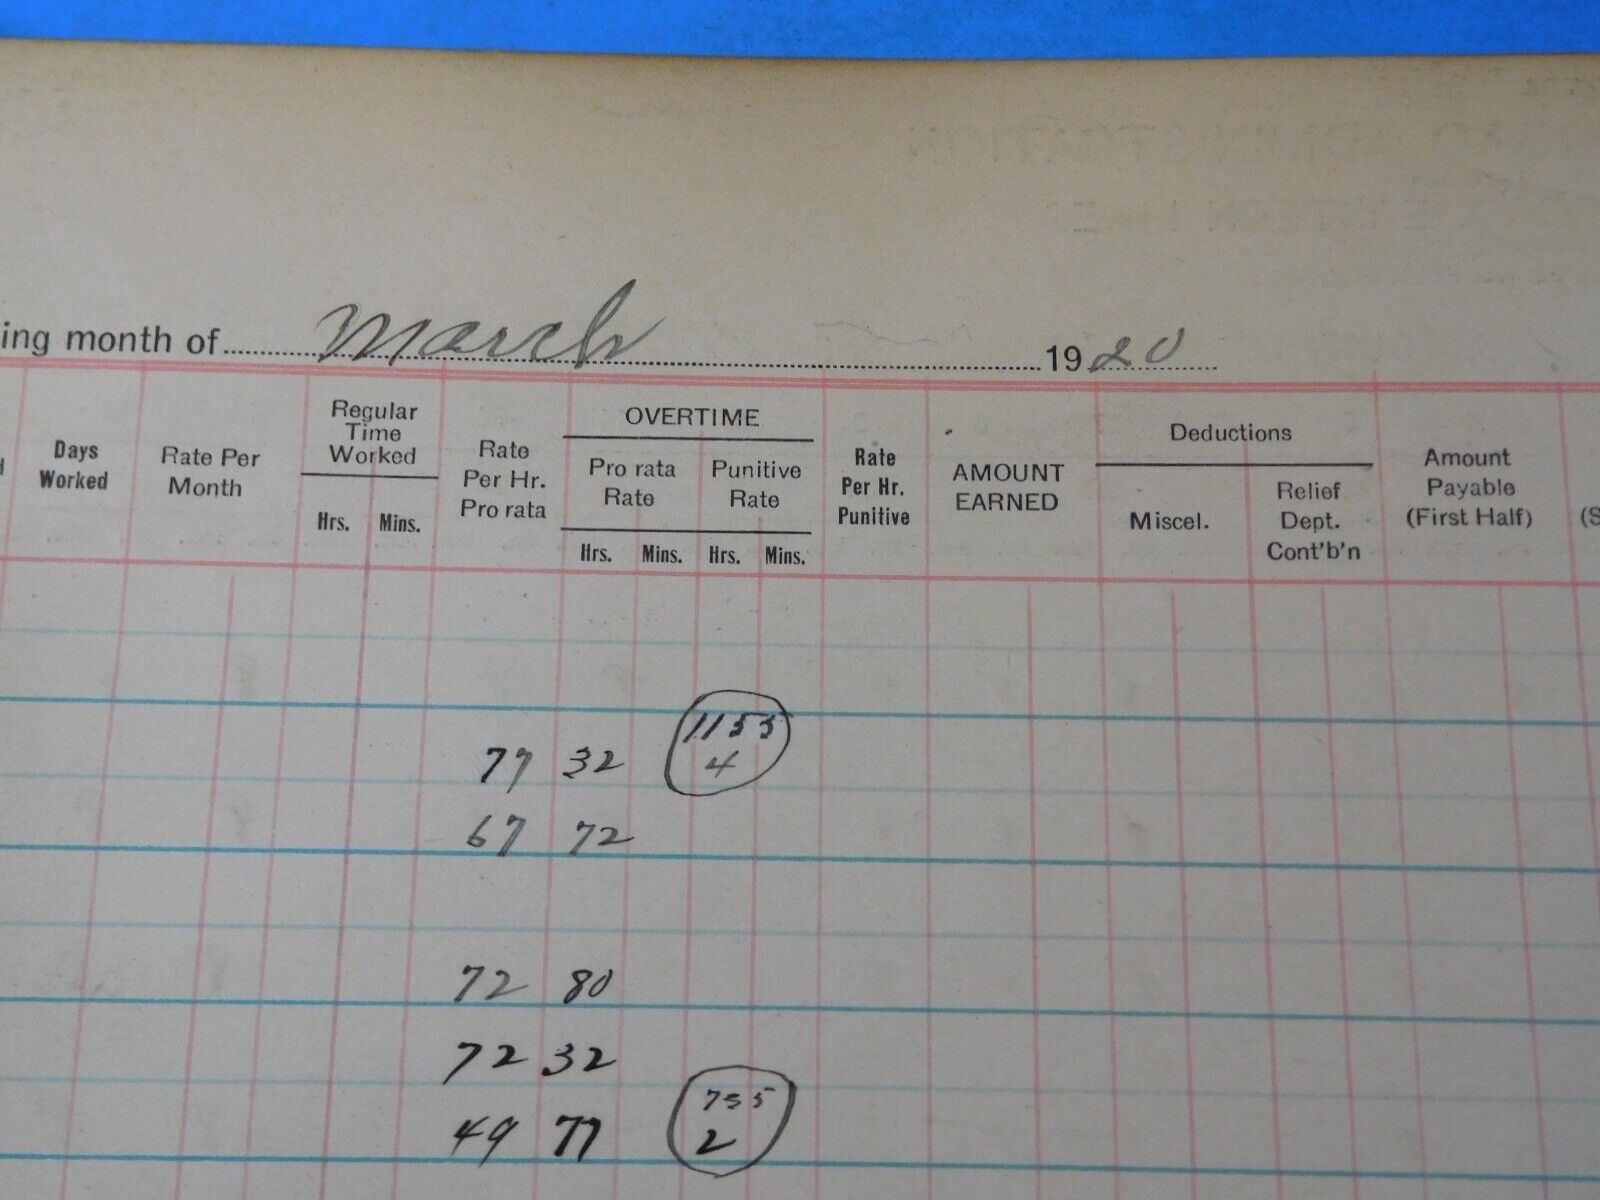 ing month of March 1920
Days Worked
Rate Per Month
Regular Time Worked
Hrs. Mins.
Rate Per Hr. Pro rata
OVERTIME
Pro rata Rate
Hrs. Mins.
Punitive Rate
Hrs. Mins.
Rate Per Hr. Punitive
AMOUNT EARNED
Deductions
Miscel.
Relief Dept. Cont'b'n
Amount Payable (First Half)
(S
1155
77 32 4
67 72
72 80
72 32
755
49 77 2